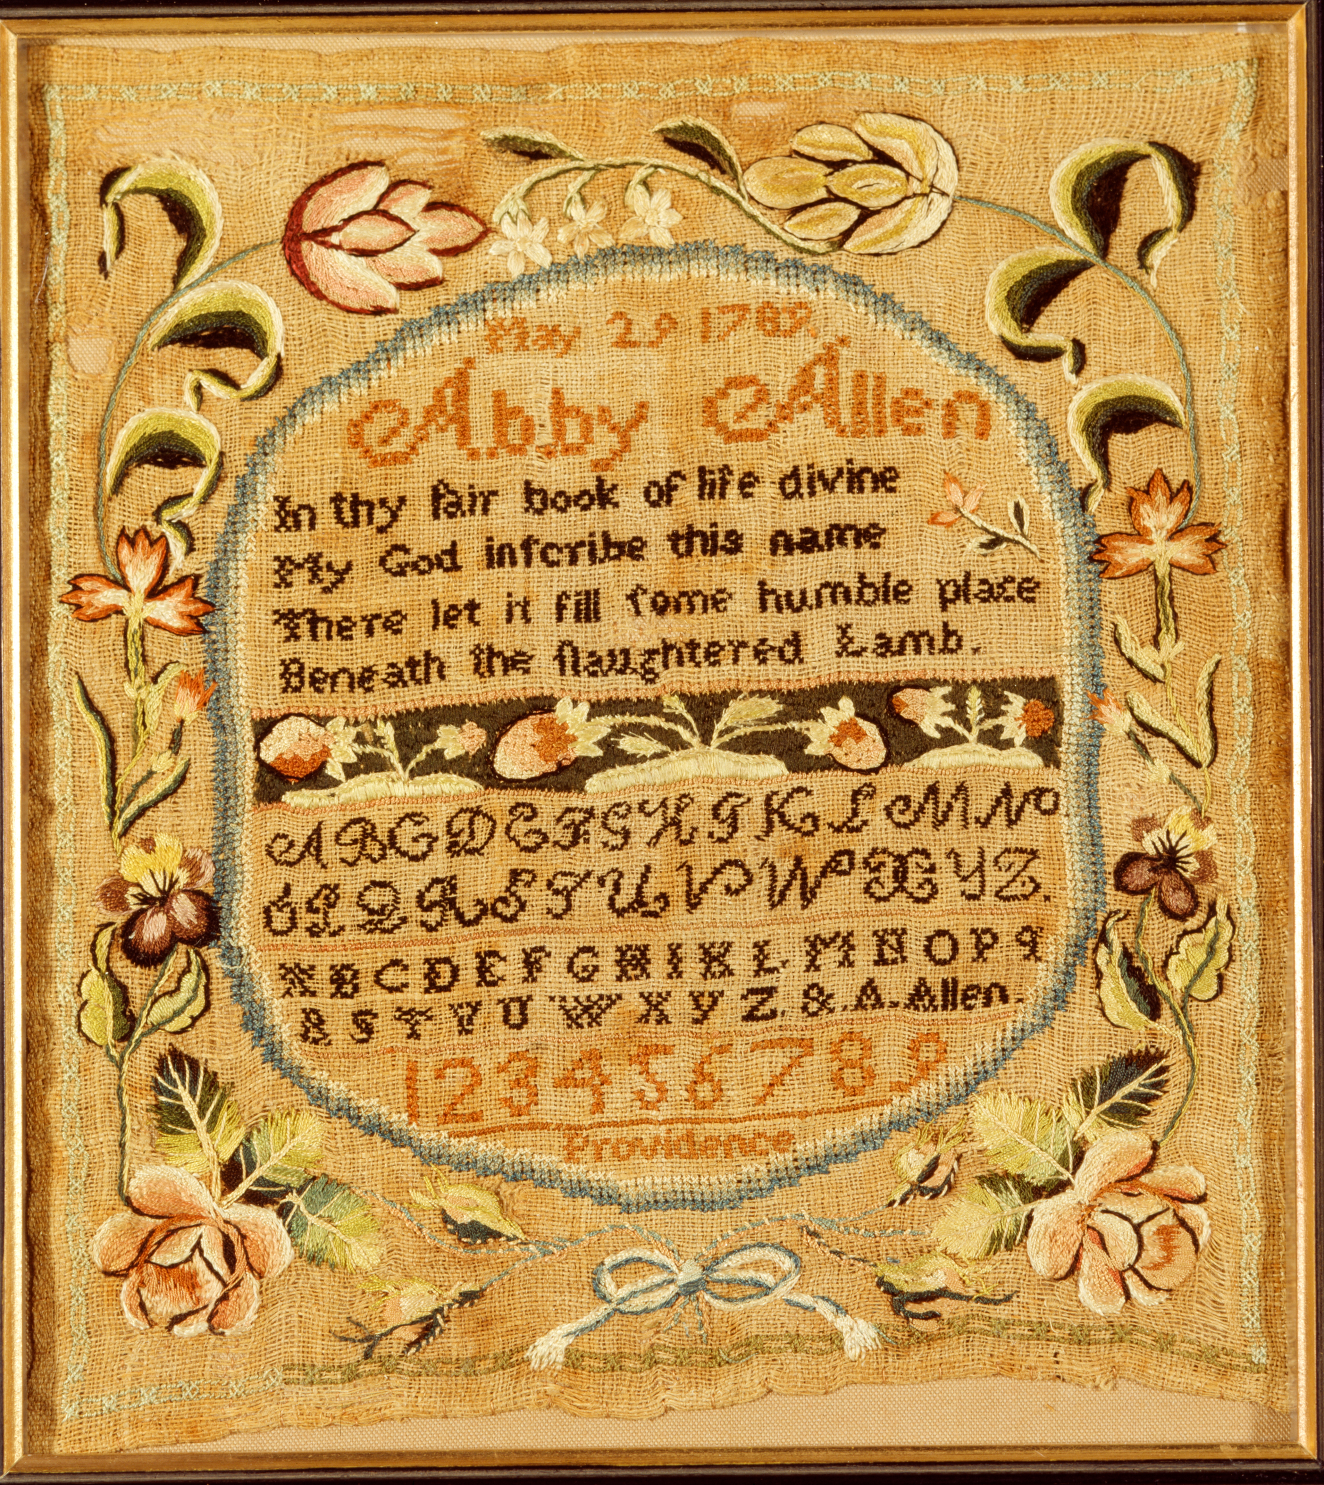 May 29 1789.
Abby Allen
In thy fair book of life divine
My God inſcribe this name
There let it fill ſome humble place
Beneath the ſlaughtered Lamb.
A B C D E F G H I K L M N
O P Q R S T U V W X Y Z.
A B C D E F G H I K L M N O P q
R S T V U W X Y Z. & A. Allen.
1 2 3 4 5 6 7 8 9
Providence